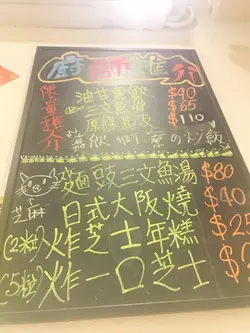 廚師推介
限量推介
油甘魚鮫 $90
三文魚 $65
$110
炒飯
麵豉三文魚湯 $80
芝麻
日式大阪燒 $40
(2粒)炸芝士年糕 $2
(5粒)炸一口芝士 $2